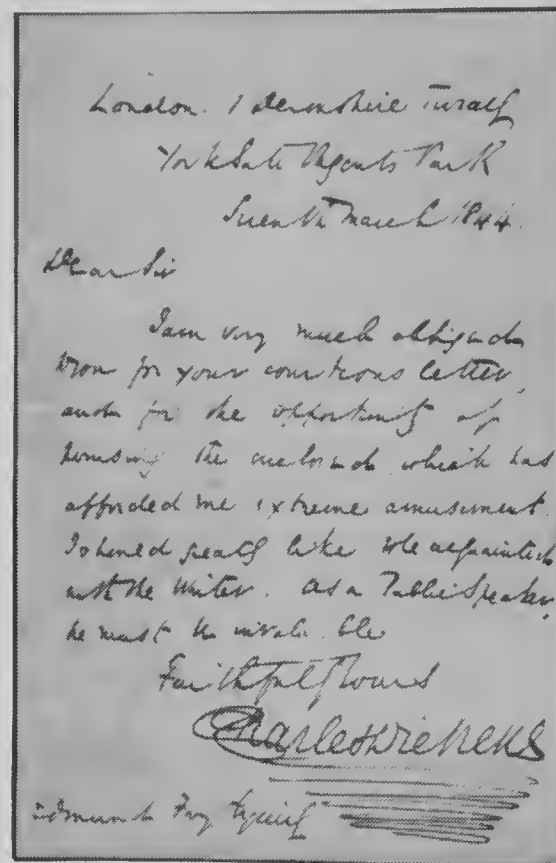 London. 1 Devonshire Terrace
York Gate Regents Park
Seventh March 1844.
Dear Sir
I am very much obliged
to you for your courteous letter,
and for the opportunity of
perusing the enclosed which has
afforded me extreme amusement.
I should greatly like to be acquainted
with the Writer. As a Public Speaker,
he must be invaluable
Faithfully Yours
Charles Dickens
Edmund Fry Esquire